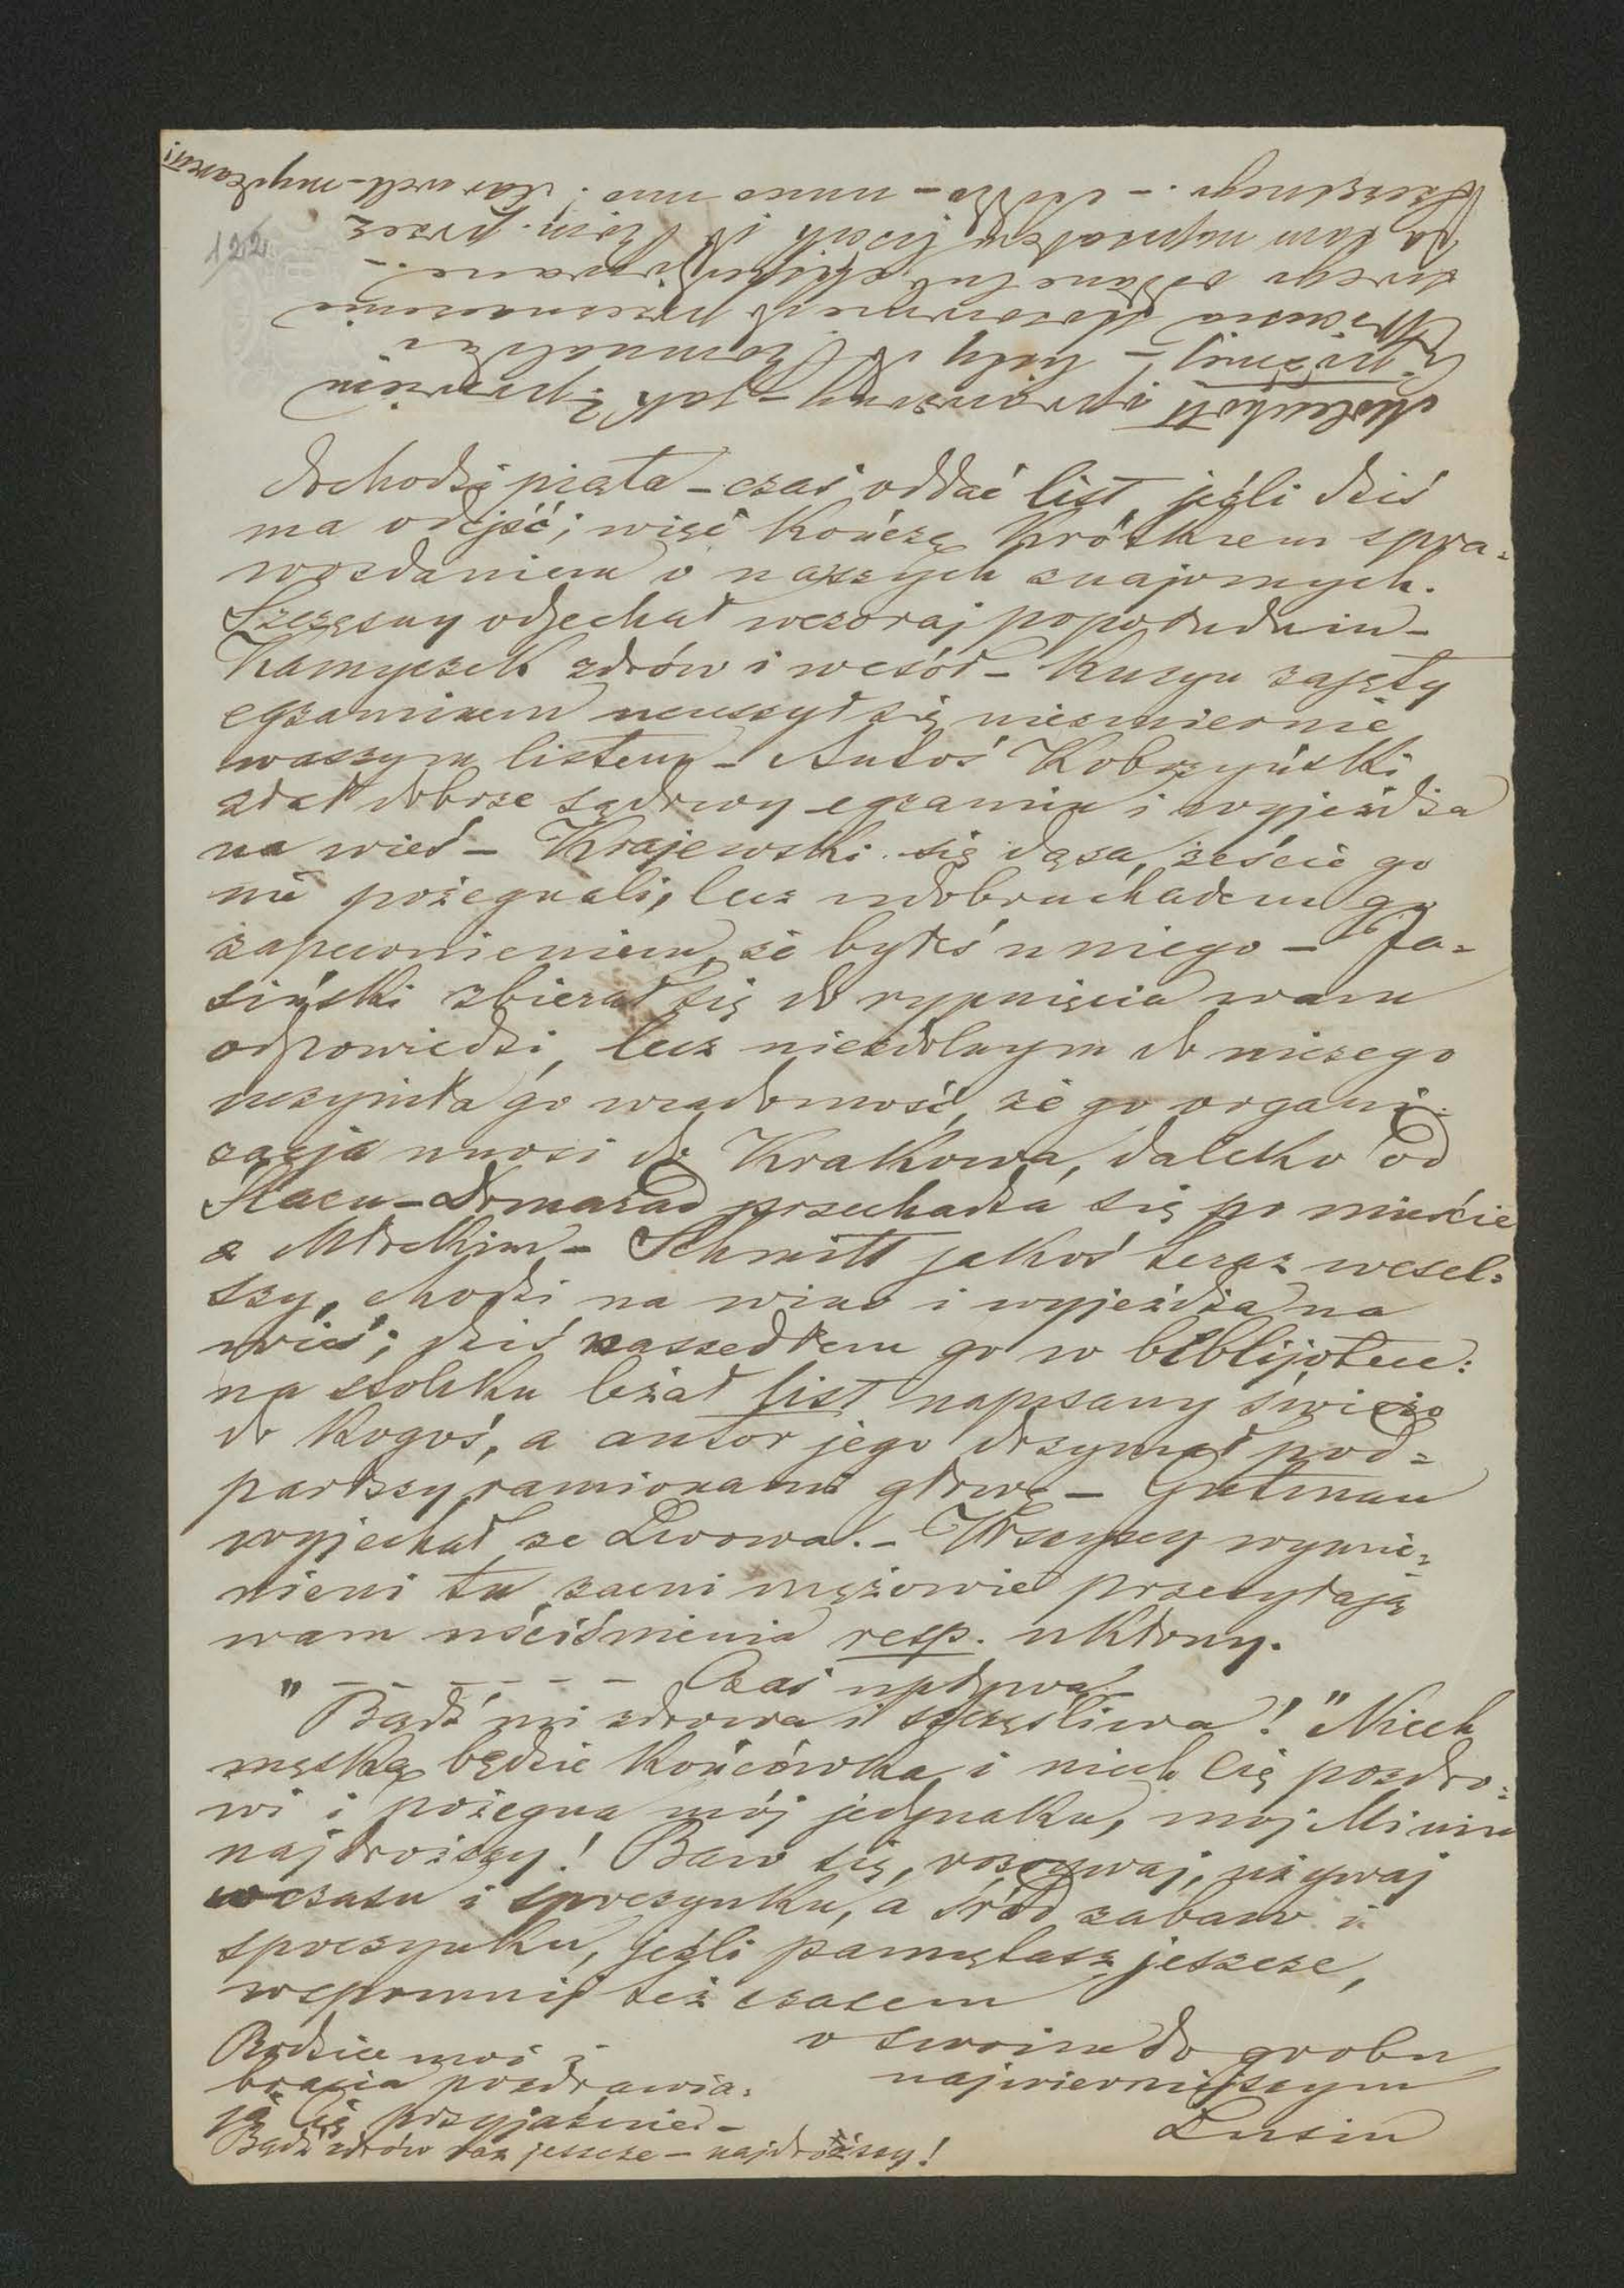 122.
Dochodzi piąta – czas oddać list, jeźli dziś
ma odejść; więc kończę krótkiem spra=
wozdaniem o naszych znajomych.
Szczęsny odjechał wczoraj popołudniu –
Kamyczek zdrów i wesół – Kuzyn zajęty
egzaminem ucieszył się niezmiernie
waszym listem – Antoś Kobrzyński
zdał dobrze sądowy egzamin i wyjeżdża
na wieś – Krajewski się dąsa, żeście go
nie pożegnali, lecz udobruchałem go
zapewnieniem, że byłeś u niego – Ja=
siński zbierał się do rypnięcia wam
odpowiedzi, lecz niezdolnym do niczego
uczyniła go wiadomość, że go organi=
zacja unosi do Krakowa, daleko od
Kacu – Domarad przechadza się po mieście
z Młockim – Schmitt jakoś teraz wesel=
szy, chodzi na wino i wyjeżdża na
wieś; dziś zaszedłem go w biblijotece:
na stoliku leżał list napisany świeżo
do kogoś, a autor jego drzymał pod=
parłszy ramionami głowę – Gutman
wyjechał ze Lwowa. – Wszyscy wymie=
nieni tu zacni mężowie przesyłają
wam uściśnienia resp. ukłony.
" – – – – – – – Czas upływa
Bądź mi zdrowa i szczęśliwa!" Niech
męską będzie końcówka, i niech Cię pozdro=
wi i pożegna mój jedynaku, mój Miniu
najdroższy! Baw się, używaj
wczasu i spoczynku, a śród zabaw i
spoczynku, jeźli pamiętasz jeszcze,
wspomnij też czasem
o swoim do grobu
najwierniejszym
Lusiu
Rodzice moi i
bracia pozdrawia=
ją Cię przyjaźnie. –
Bądź zdrów raz jeszcze – najdroższy!
i – listy do Romualda i
oddane lub
są tam listy i do przez
Szczęsnego. –